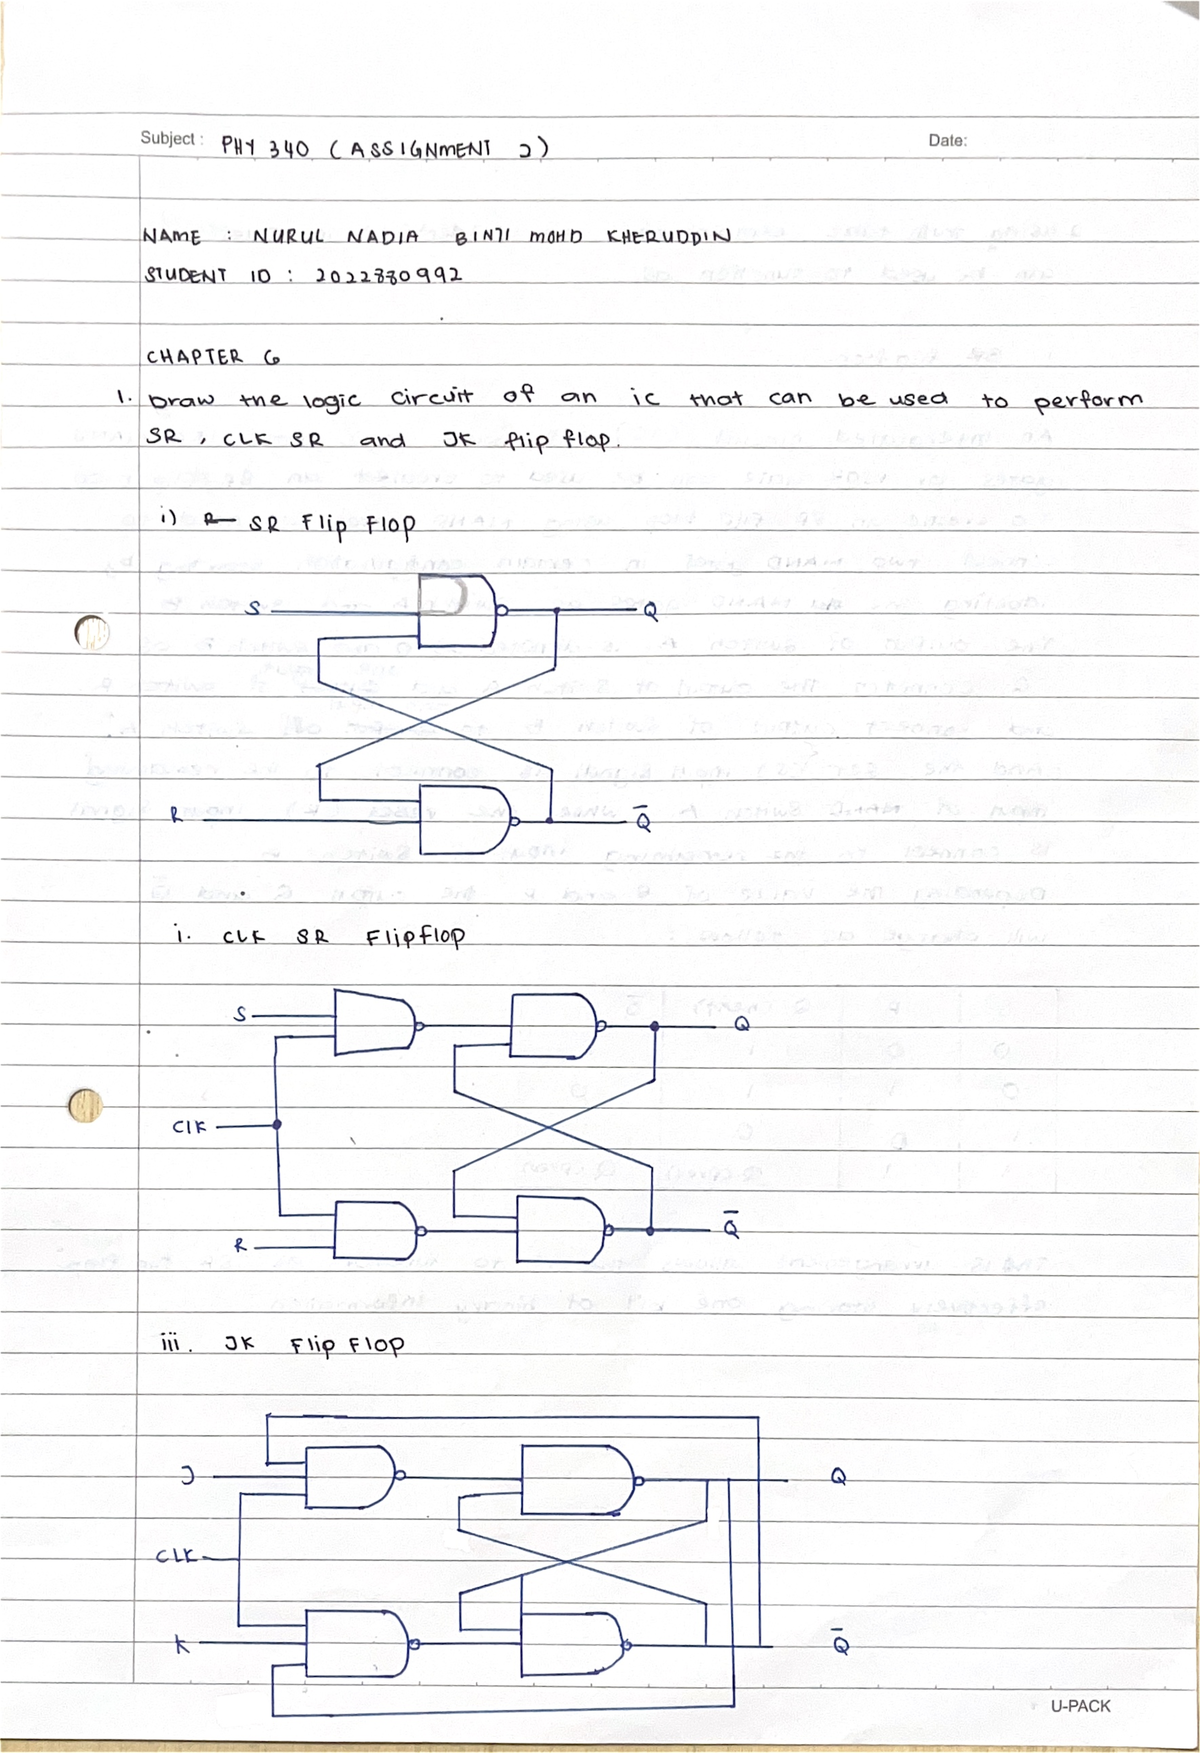 Subject : PHY 340 ( ASSIGNMENT 2 )
Date:
NAME : NURUL NADIA BINTI MOHD KHERUDDIN
STUDENT ID : 2022880992
CHAPTER 6
1. Draw the logic circuit of an ic that can be used to perform
SR, CLK SR and JK flip flop.
i) SR Flip Flop
S
Q
R
Q̅
i. CLK SR Flipflop
S
Q
Clk
R
Q̅
iii. JK Flip Flop
J
Q
CLK
K
Q̅
U-PACK